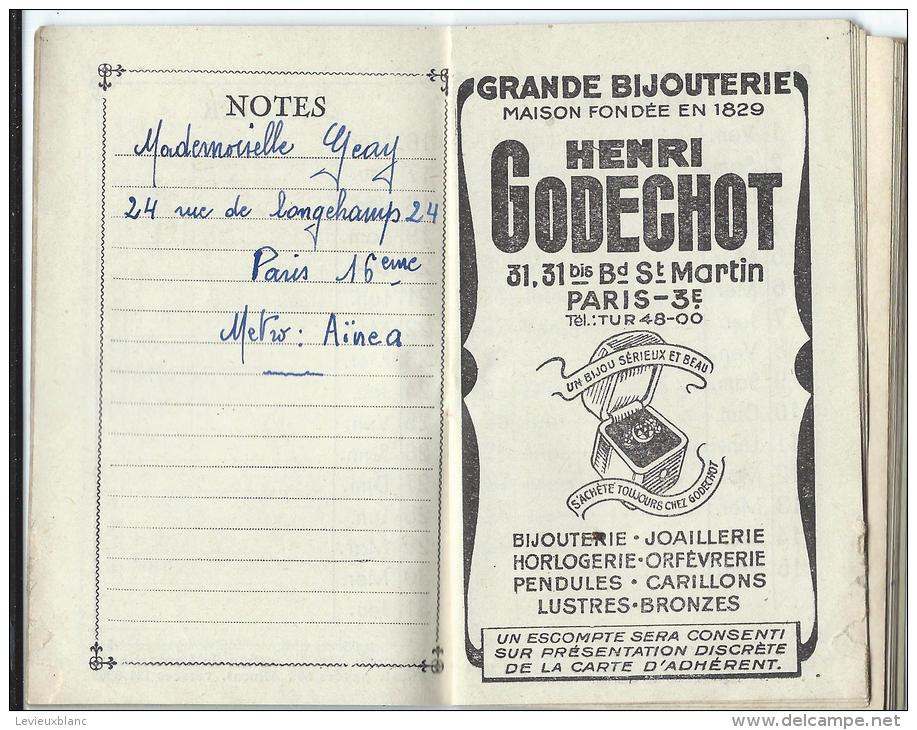 NOTES
Mademoiselle Geay
24 rue de longchamp 24
Paris 16 eme
Metro: Aïnea
GRANDE BIJOUTERIE
MAISON FONDÉE EN 1829
HENRI
GODECHOT
31, 31 bis Bd St Martin
PARIS-3E
Tél.: TUR 48-00
UN BIJOU SÉRIEUX ET BEAU
S'ACHÈTE TOUJOURS CHEZ GODECHOT
BIJOUTERIE • JOAILLERIE
HORLOGERIE • ORFÈVRERIE
PENDULES • CARILLONS
LUSTRES • BRONZES
UN ESCOMPTE SERA CONSENTI
SUR PRÉSENTATION DISCRÈTE
DE LA CARTE D'ADHÉRENT.
Levieuxblanc
www.delcampe.net